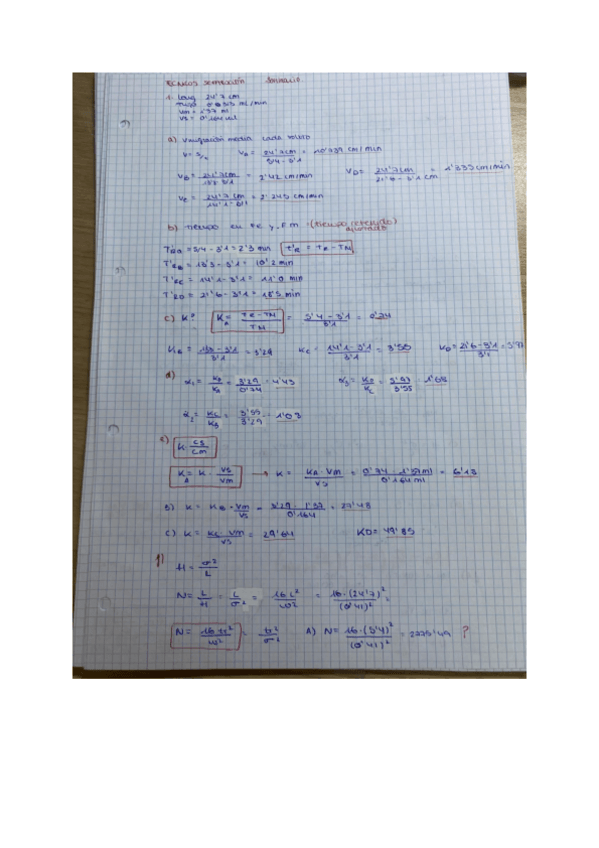 TECNICAS SEPARACIÓN Seminario.
1. Long 24'7 cm
flujo 0'313 mL/min
Vm = 1'37 ml
Vs = 0'164 ml
a) V migración media cada soluto
V = S/t VA = 24'7cm / 5'4 - 3'1 = 10'739 cm/min
VB = 24'7cm / 13'3 - 3'1 = 2'42 cm/min VD = 24'7cm / 21'6 - 3'1 cm = 1'335 cm/min
VC = 24'7cm / 14'1 - 3'1 = 2'245 cm/min
b) Tiempo en FE y FM (tiempo retenido) ajustado
T'RA = 5'4 - 3'1 = 2'3 min t'R = TR - TM
T'RB = 13'3 - 3'1 = 10'2 min
T'RC = 14'1 - 3'1 = 11'0 min
T'RD = 21'6 - 3'1 = 18'5 min
c) K? KA = TR - TM / TM = 5'4 - 3'1 / 3'1 = 0'74
KB = 13'3 - 3'1 / 3'1 = 3'29 KC = 14'1 - 3'1 / 3'1 = 3'55 KD = 21'6 - 3'1 / 3'1 = 5'97
d) α1 = KB / KA = 3'29 / 0'74 = 4'45 α3 = KD / KC = 5'97 / 3'55 = 1'68
α2 = KC / KB = 3'55 / 3'29 = 1'08
e) K · CS / Cm
KA = K · VS / Vm → K = KA · Vm / VS = 0'74 · 1'37 ml / 0'164 ml = 6'18
B) K = KB · Vm / VS = 3'29 · 1'37 / 0'164 = 27'48
C) K = KC · Vm / VS = 29'64 KD = 49'85
f)
H = σ² / L
N = L / H = L / σ² = 16 L² / W² = 16 · (24'7)² / (0'41)² =
N = 16 tr² / W² = tr² / σ² A) N = 16 · (5'4)² / (0'41)² = 2775'49 ?